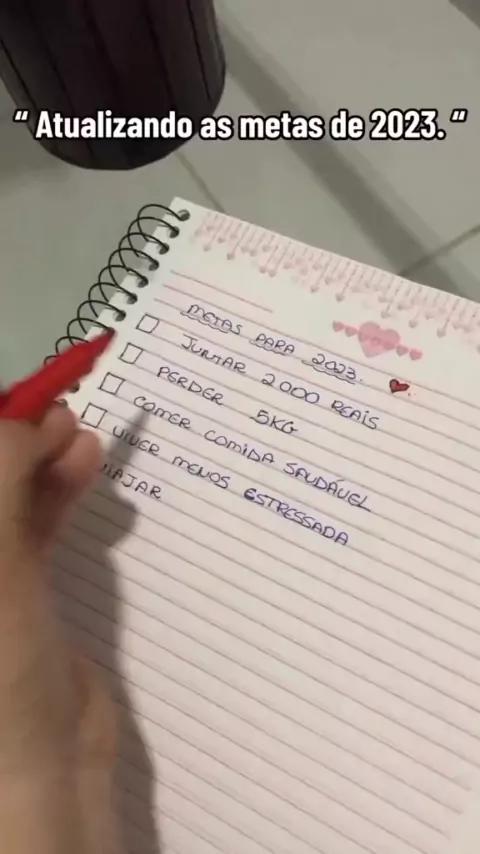 “ Atualizando as metas de 2023. “
METAS PARA 2023.
JUNTAR 2000 REAIS
PERDER 5KG
COMER COMIDA SAUDÁVEL
VIVER MENOS ESTRESSADA
VIAJAR